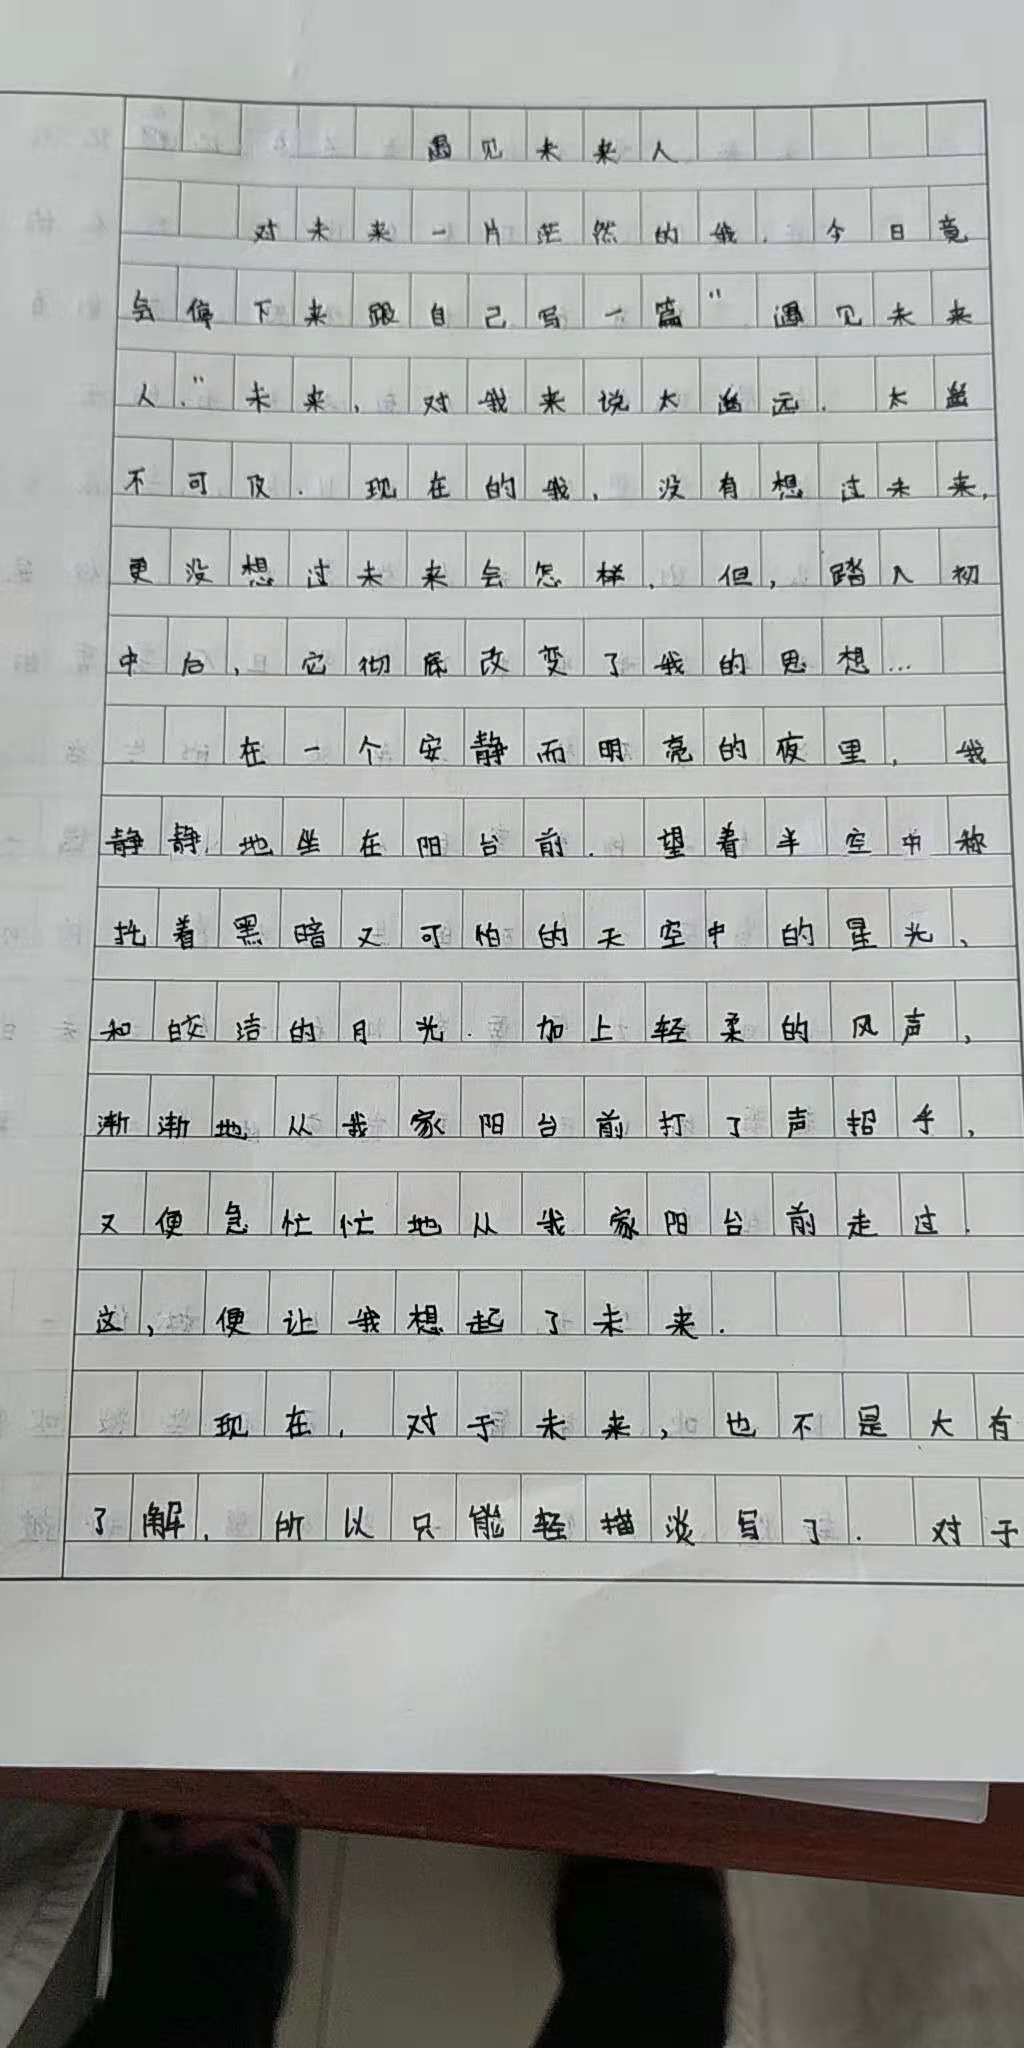 遇见未来人
对未来一片茫然的我.今日竟
会停下来跟自己写一篇"遇见未来
人."未来,对我来说太遥远.太遥
不可及.现在的我,没有想过未来,
更没想过未来会怎样,但,踏入初
中后,它彻底改变了我的思想…
在一个安静而明亮的夜里,我
静静地坐在阳台前.望着半空中称
托着黑暗又可怕的天空中的星光、
和皎洁的月光.加上轻柔的风声,
渐渐地从我家阳台前打了声招手,
又便急忙忙地从我家阳台前走过.
这,便让我想起了未来.
现在,对于未来,也不是大有
了解,所以只能轻描淡写了.对于